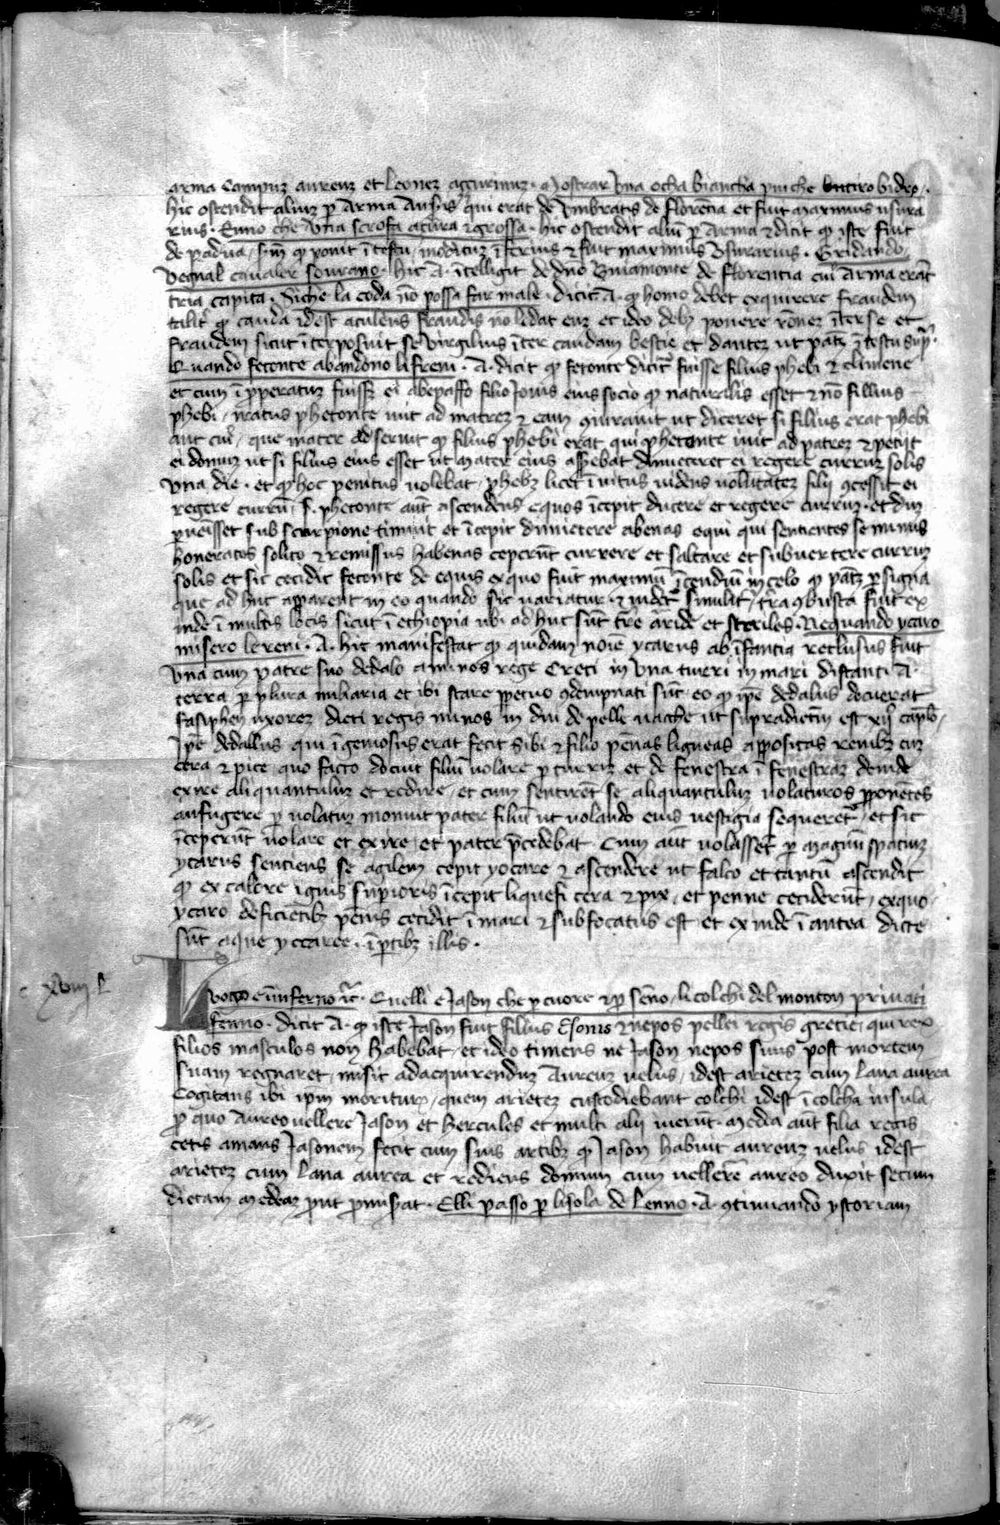 arma Campuz aureuz et leonez azurinuz · Mostrar Una ocha biancha piu che butiro bidro ·
hic ostendit aliuz p Arma Anseris qui erat de Umbratis de florencia et fuit maximus usura
rius · Euno che Una scrofa azura z grossa · hic ostendit aliu p Arma z dicit q iste fuit
de padua, s m q ponit i textu, modicuz iferius z fuit maximus Usurarius · Gridando
Vegnal cavaler sovrano · hic A · itelligit de dno Buiamonte de florentia cui Arma erat
tria capita · Siche la coda no possa far male · dicit A · q homo debet exquirere fraudem
talit q cauda idest aculeus fraudis no ledat euz et ideo debz ponere ronez iter se et
fraudem sicut iterposuit se Virgilius iter caudam bestie et dantez ut patz i textu sup
Quando fetonte abandono li freni · A · dicit q fetonte dicit fuisse filius phebi z climene
et cum i properatuz fuissz ei abepaffo filio Jovis eius socio q naturalis esset z no fillius
phebi, iratus phetonte ivit ad matrez z eam giuravit ut diceret si fillius erat phebi
aut cui, que mater adseruit q filius phebi erat qui phetonte ivit ad patrez z petiit
ei donuz ut si filius eius esset ut mater eius asserebat dimicteret ei regere curruz solis
Una die · et q hoc penitus volebat, phebz licet ivitus videns voluntatez filii gcessit ei
regere curru · s · phetonte aut ascendens equos icepit ducere et regere curruz · et duz
pvenisset sub scorpione timuit et icepit dimictere abenas equi qui sentientes se minus
honeratos solito z remissus habenas ceperut currere et saltare et subvertere curruz
solis et sic cecidit fetonte de equis ex quo fuit maximu icendiu in celo q patz p signa
que ad huc apparent in eo quando sic variatur · z videt similit, tra gbusta fuit ex
inde i multis locis sicut i ethiopia ubi ad huc sut tre aride et steriles · Ne quando ycaro
misero le reni · A · hic manifestat q quidam noie ycarus ab ifantia reclusus fuit
Una cum patre suo dedalo a minos rege Creti in Una tureri in mari distanti A ·
terra p plura miliaria et ibi stare ppetuo gdempnati sut · eo q ipe dedalus docuerat
fasiphen uxorez dicti regis minos in dui de pelle vache ut supradictum est xii caplo,
Ipe dedallus qui igeniosus erat fecit sibi z filio penas ligneas appositas renibz cuz
cera z pice quo facto docuit filiu volare p turriz et de fenestra i fenestraz deinde
exire aliquantuluz et redire, et cum sentiret se aliquantuluz volaturos pponetes
aufugere p volatuz monuit pater filiu ut volando eius vestigia sequeret, et sic
iceperut volare et exire, et pater pcedebat · Cum aut volasset p magnu spatiuz
ycarus sentiens se agilem cepit yocare z ascendere ut falco et tantu ascendit
q ex calore ignis superioris icepit liquefi cera z pix, et penne ceciderut, ex quo,
ycaro deficientibz penis cecidit i mari z subfocatus est · et ex inde i antea dicte
sut aque yccaree · i ptibz illis ·
xviii
Luogo e in inferno zc · Quelli e Jason che p cuore z p seno, li colchi del monton privati
fenno · dicit A · q iste Jason fuit filius Esonis z nepos pellei regis grecie, qui rex
filios masculos non habebat, et ideo timens ne Jason nepos suus post mortem
suam regnaret, misit ad acquirenduz Aureuz velus, idest arietez cum lana aurea
Cogitans ibi ipm moriturz, quem arietez custodiebant colchi idest i colcha insula,
p quo Aureo vellere Jason et hercules et multi alii iverut · Media aut filia regis
cetis amans Jasonem fecit cum suis artibz q Jason habuit aureuz velus idest
arietez cum lana aurea et rediens domum cum vellere aureo duxit secum
dictam medeaz put pmiserat · Elli passo p lisola de lenno · A · gtinuando ystoriam